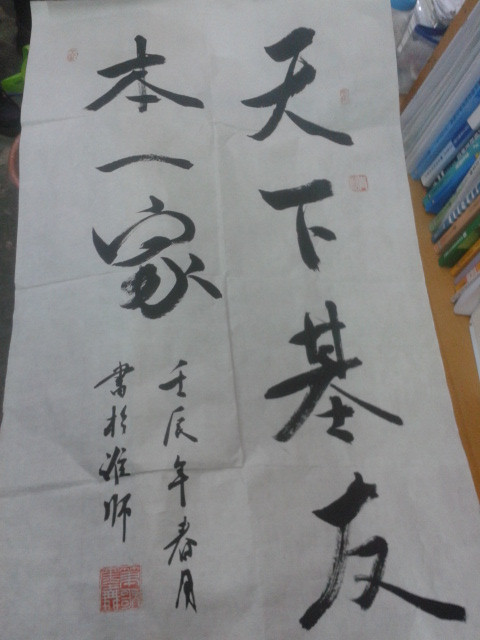 天下基友
本一家
壬辰年春月
書於淮师